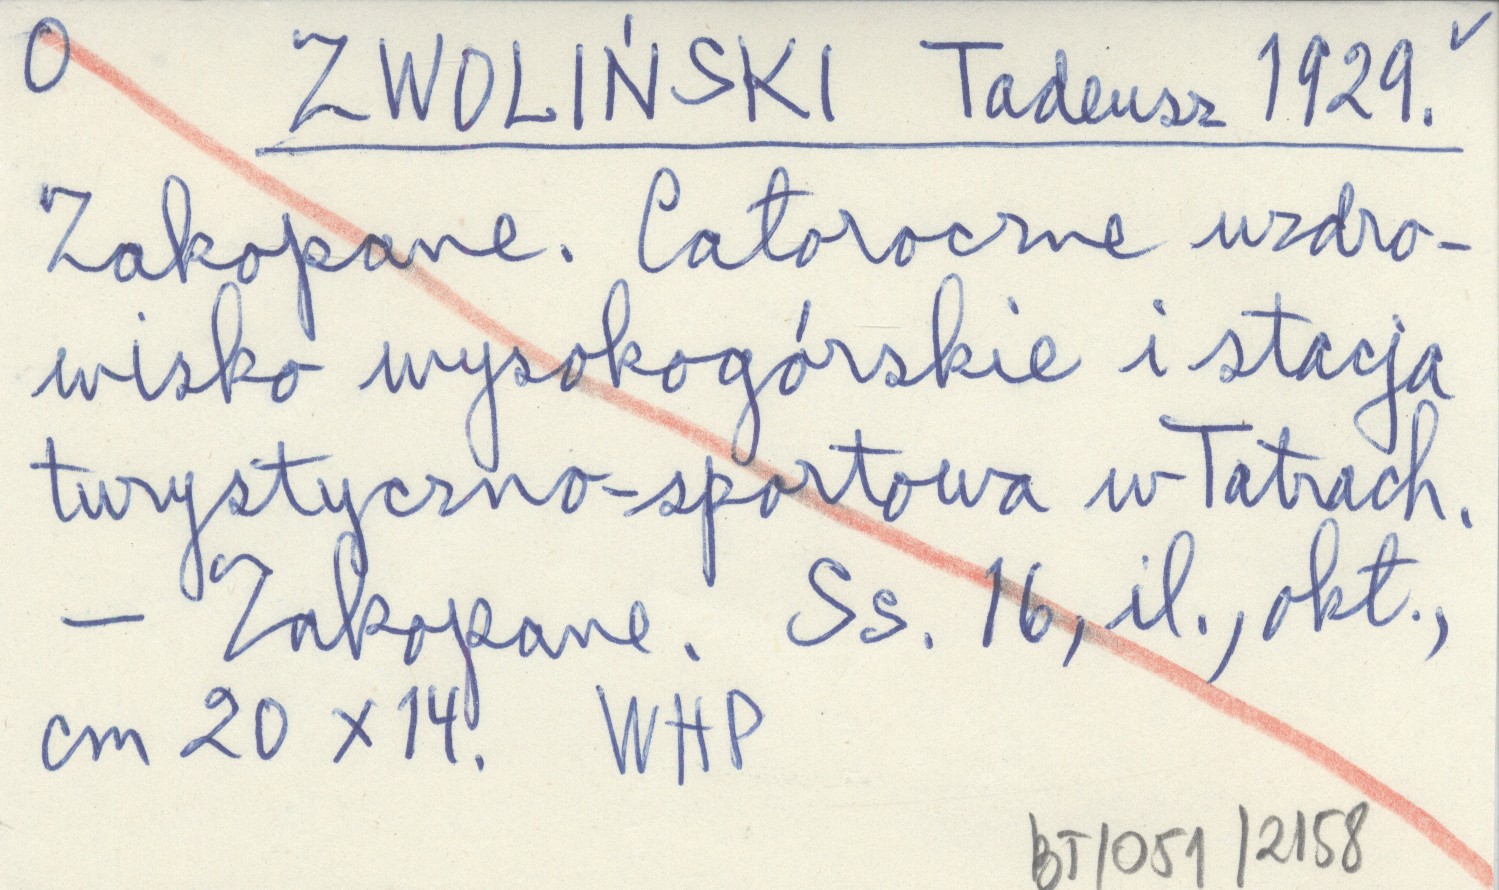 O ZWOLIŃSKI Tadeusz 1929.
Zakopane. Całoroczne uzdro-
wisko wysokogórskie i stacja
turystyczno-sportowa w Tatrach.
— Zakopane. Ss. 16, il., okł.,
cm 20 x 14. WHP
BT/051/2158